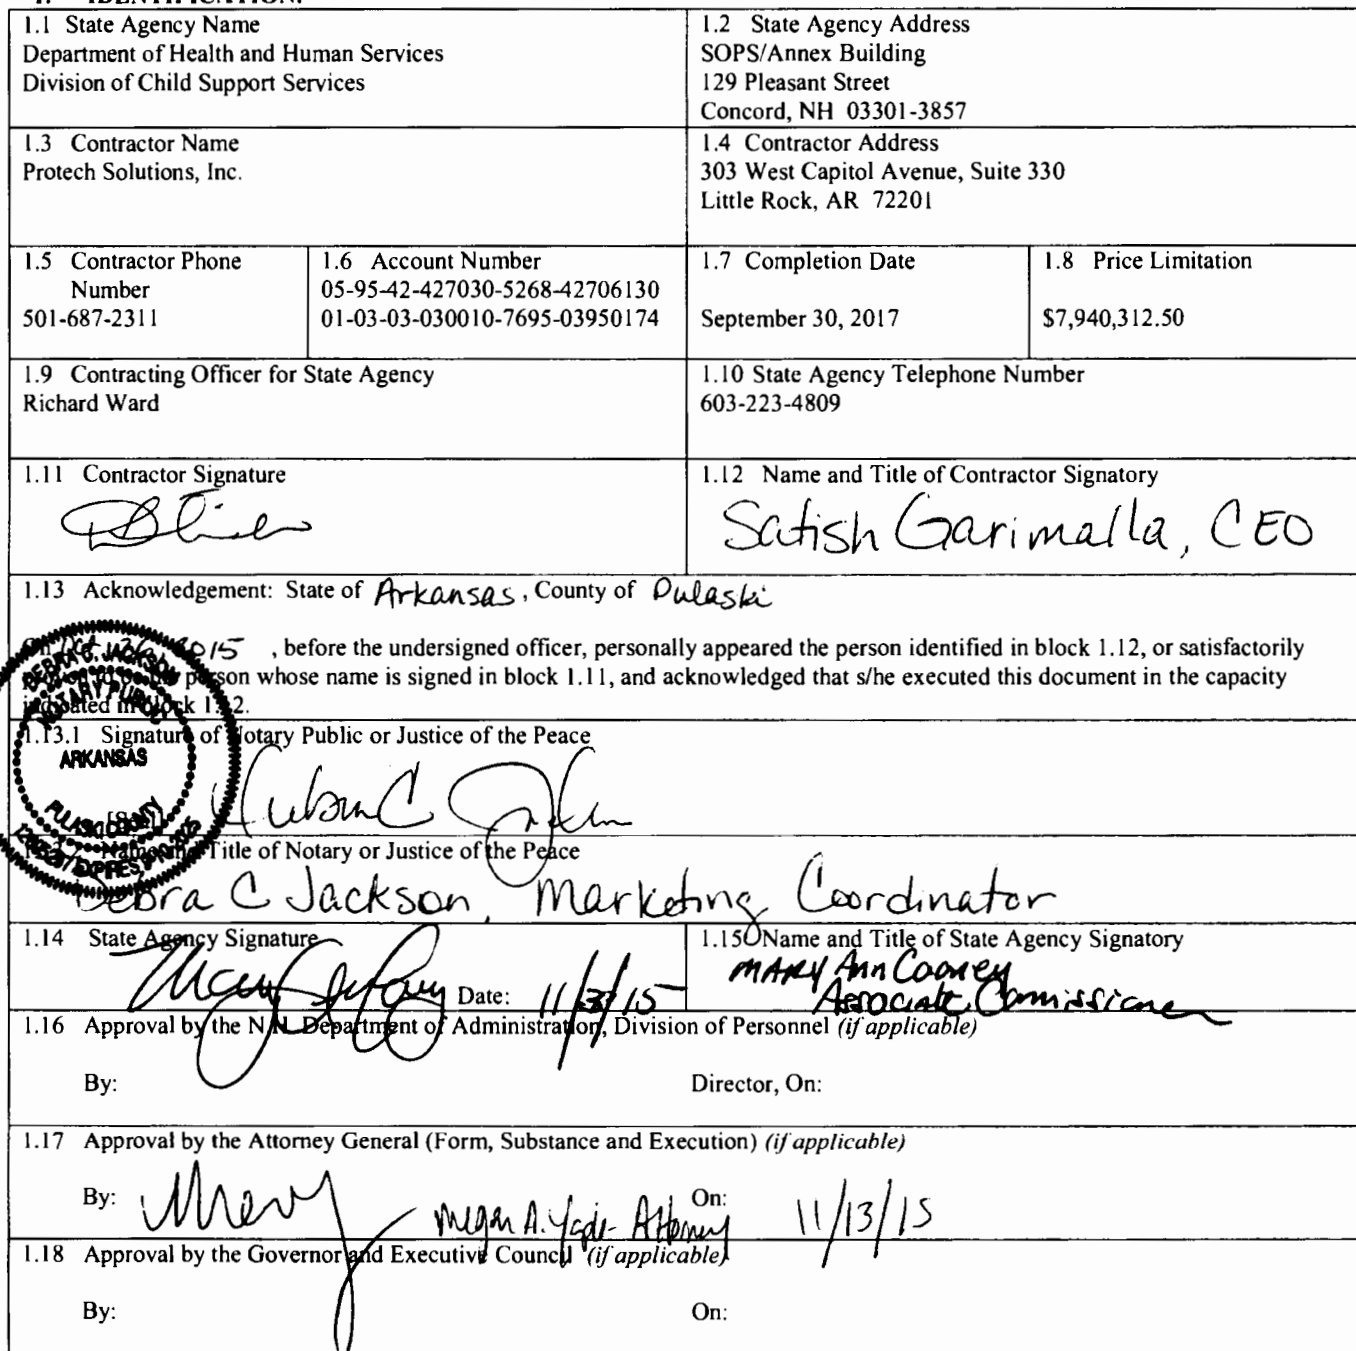 1. IDENTIFICATION.
1.1 State Agency Name
Department of Health and Human Services
Division of Child Support Services
1.2 State Agency Address
SOPS/Annex Building
129 Pleasant Street
Concord, NH 03301-3857
1.3 Contractor Name
Protech Solutions, Inc.
1.4 Contractor Address
303 West Capitol Avenue, Suite 330
Little Rock, AR 72201
1.5 Contractor Phone
Number
501-687-2311
1.6 Account Number
05-95-42-427030-5268-42706130
01-03-03-030010-7695-03950174
1.7 Completion Date
September 30, 2017
1.8 Price Limitation
$7,940,312.50
1.9 Contracting Officer for State Agency
Richard Ward
1.10 State Agency Telephone Number
603-223-4809
1.11 Contractor Signature
1.12 Name and Title of Contractor Signatory
Satish Garimalla, CEO
1.13 Acknowledgement: State of Arkansas, County of Pulaski
On Oct 2015 , before the undersigned officer, personally appeared the person identified in block 1.12, or satisfactorily
person whose name is signed in block 1.11, and acknowledged that s/he executed this document in the capacity
indicated in block 1.12.
DEBRA C. JACKSON
NOTARY PUBLIC
ARKANSAS
PULASKI COUNTY
EXPIRES
1.13.1 Signature of Notary Public or Justice of the Peace
[Seal]
Name and Title of Notary or Justice of the Peace
Debra C Jackson, Marketing Coordinator
1.14 State Agency Signature
Date: 11/3/15
1.15 Name and Title of State Agency Signatory
MARY Ann Cooney
Associate Commissioner
1.16 Approval by the N.H. Department of Administration, Division of Personnel (if applicable)
By: Director, On:
1.17 Approval by the Attorney General (Form, Substance and Execution) (if applicable)
By: Megan A. Attorney On: 11/13/15
1.18 Approval by the Governor and Executive Council (if applicable)
By: On: